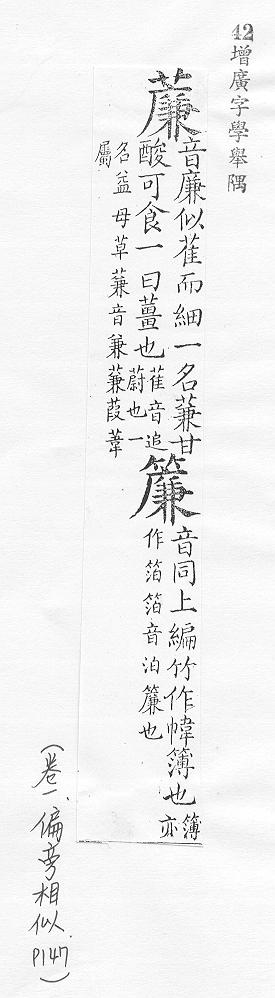 42
增廣字學舉隅
薕音廉似萑而細一名蒹甘
酸可食一曰薑也萑音追
蔚也一
名益母草蒹音兼蒹葭葦
屬
簾音同上編竹作幃簿也簿
亦
作箔箔音泊簾也
(卷一、偏旁相似. P147)